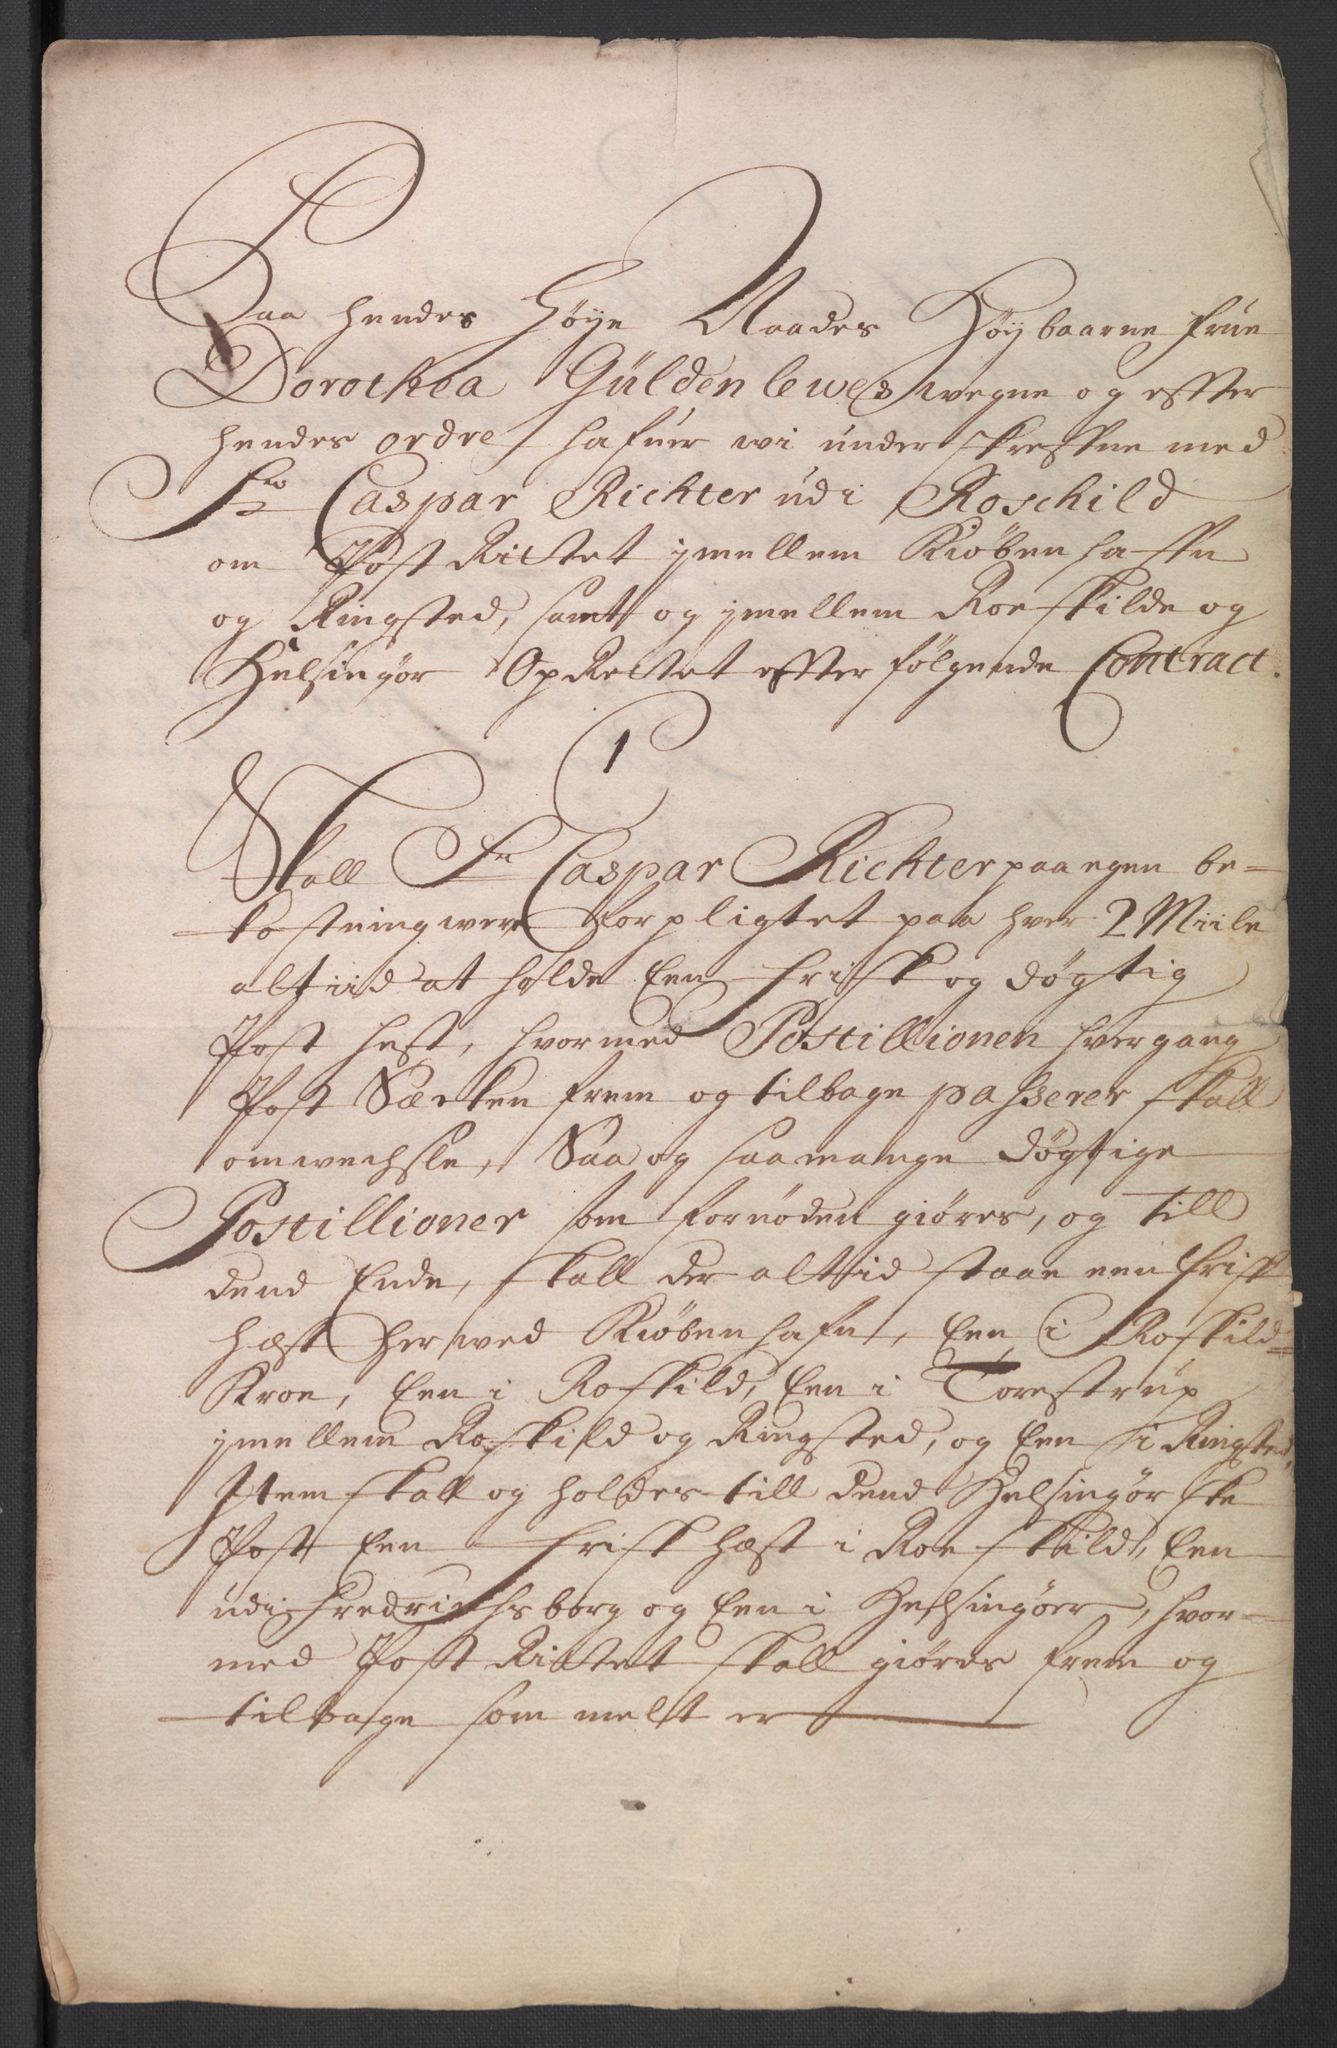 Paa hendes Höye Naades Höybaarne Frue
Dorothea Güldenlewes wegne og effter
hendes ordre hafuer wi underskreffne med
Sr Caspar Richter udi Roschild
om Post Rittet imellem Kiöbenhaffn
og Ringsted, samt og imellem Roeskilde og
Helsingör OpRettet effterfölgende Contract.
1
Skall Sr Caspar Richter paa egen be-
kostning were forpligtet paa hver 2 Miile
altiid at holde Een frisk og dögtig
Post hest, hvormed Postillionen hvergang
Post Sæcken frem og tilbage passerer skall
omwechsle, Saa og saa mange dögtige
Postillioner som fornöden giöres, og till
dend Ende, skall der altid staae een frisk
hæst her wed Kiöbenhafn, Een i Roskild=
Kroe, Een i Roskild, Een i Torestrup
imellem Roskild og Ringsted, og Een i Ringsted,
Item skall og holdes till dend Helsingörske
Post Een frisk hæst i Roeskild, Een
udi Fredrichsborg og Een i Helsingöer, hvor-
med Post Rittet skall giöres frem og
tilbage som melt er